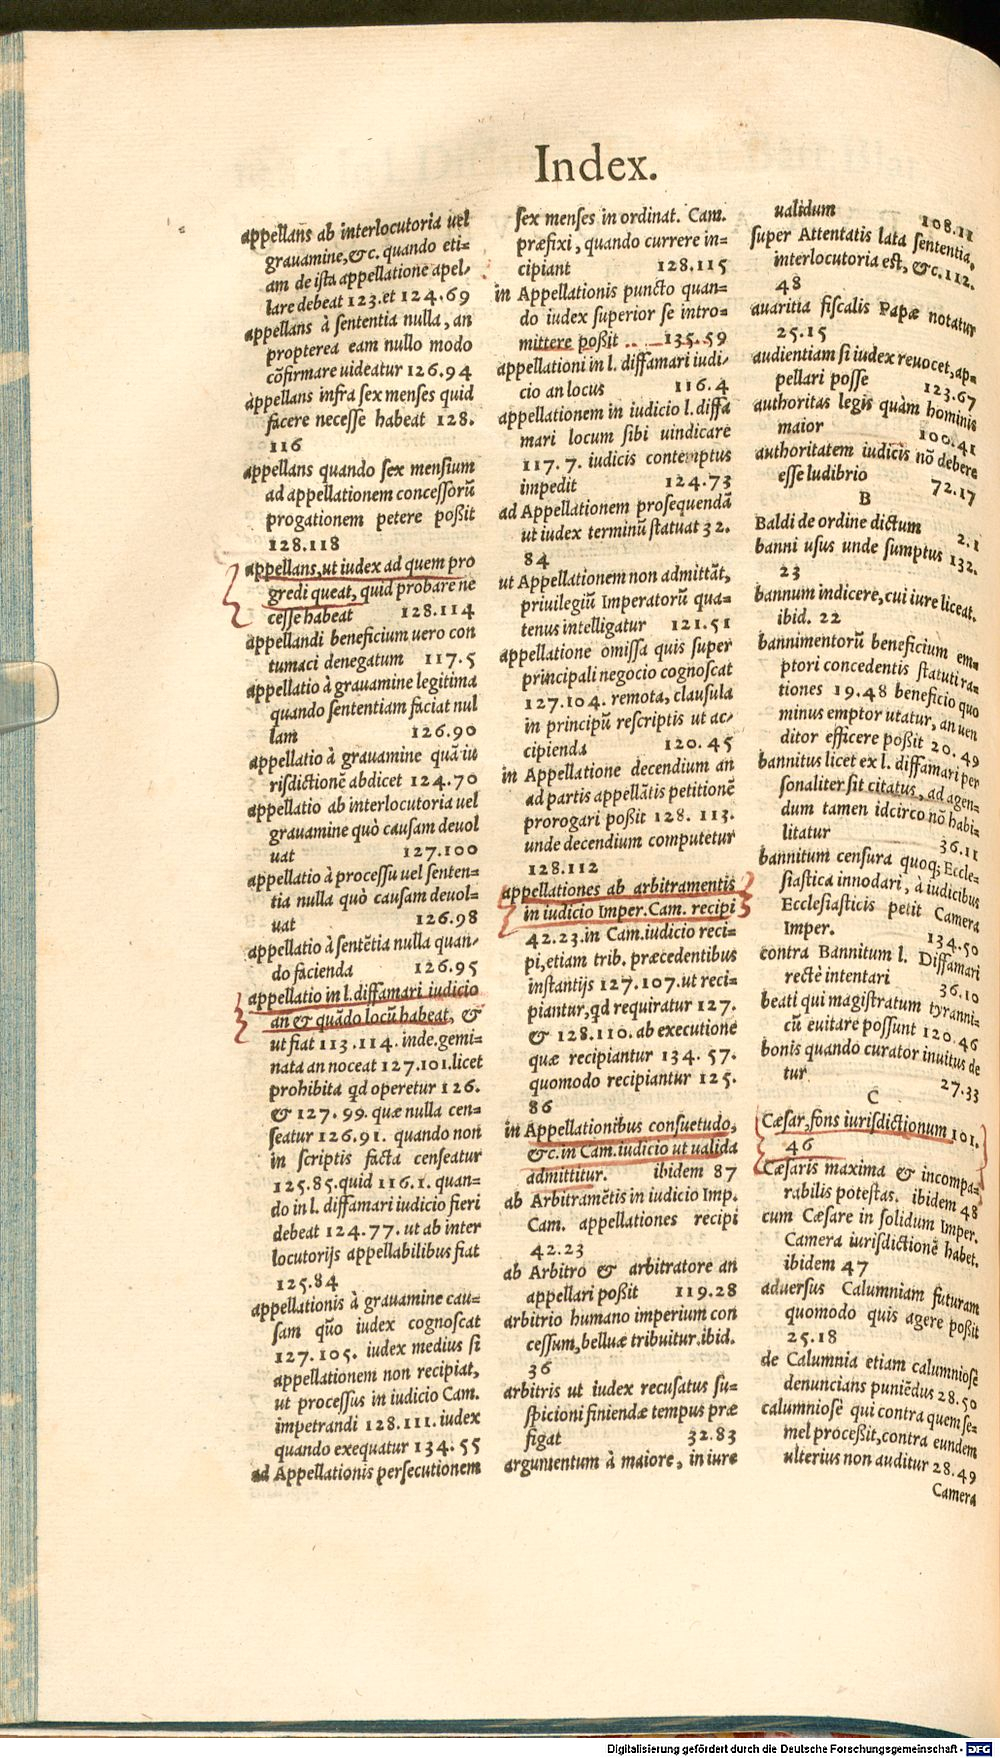 Index.
appellans ab interlocutoria uel
grauamine,&c. quando eti-
am de ista appellatione apel-
lare debeat 123.et 124.69
appellans à sententia nulla, an
propterea eam nullo modo
cōfirmare uideatur 126.94
appellans infra sex menses quid
facere necesse habeat 128.
116
appellans quando sex mensium
ad appellationem concessorū
progationem petere poßit
128.118
appellans,ut iudex ad quem pro
gredi queat, quid probare ne
cesse habeat 128.114
appellandi beneficium uero con
tumaci denegatum 117.5
appellatio à grauamine legitima
quando sententiam faciat nul
lam 126.90
appellatio à grauamine quā iu
risdictionē abdicet 124.70
appellatio ab interlocutoria uel
grauamine quò causam deuol
uat 127.100
appellatio à processu uel senten-
tia nulla quò causam deuol-
uat 126.98
appellatio à sentētia nulla quan-
do facienda 126.95
appellatio in l.diffamari iudicio
an & quādo locū habeat, &
ut fiat 113.114. inde.gemi-
nata an noceat 127.101.licet
prohibita qd operetur 126.
& 127.99. quæ nulla cen-
seatur 126.91. quando non
in scriptis facta censeatur
125.85.quid 116.1. quan-
do in l. diffamari iudicio fieri
debeat 124.77. ut ab inter
locutorijs appellabilibus fiat
125.84
appellationis à grauamine cau-
sam qūo iudex cognoscat
127.105. iudex medius si
appellationem non recipiat,
ut processus in iudicio Cam.
impetrandi 128.111. iudex
quando exequatur 134.55
ad Appellationis persecutionem
sex menses in ordinat. Cam.
præfixi, quando currere in-
cipiant 128.115
in Appellationis puncto quan-
do iudex superior se intro-
mittere poßit 135.59
appellationi in l. diffamari iudi-
cio an locus 116.4
appellationem in iudicio l.diffa
mari locum sibi uindicare
117.7. iudicis contemptus
impedit 124.73
ad Appellationem prosequendā
ut iudex terminū statuat 32.
84
ut Appellationem non admittāt,
priuilegiū Imperatorū qua-
tenus intelligatur 121.51
appellatione omissa quis super
principali negocio cognoscat
127.104. remota, clausula
in principū rescriptis ut ac-
cipienda 120.45
in Appellatione decendium an
ad partis appellātis petitionē
prorogari poßit 128. 113.
unde decendium computetur
128.112
appellationes ab arbitramentis
in iudicio Imper.Cam. recipi
42.23.in Cam.iudicio reci-
pi,etiam trib. præcedentibus
instantijs 127.107.ut reci-
piantur,qd requiratur 127.
& 128.110. ab executione
quæ recipiantur 134. 57.
quomodo recipiantur 125.
86
in Appellationibus consuetudo,
&c.in Cam.iudicio ut ualida
admittitur. ibidem 87
ab Arbitramētis in iudicio Imp.
Cam. appellationes recipi
42.23
ab Arbitro & arbitratore an
appellari poßit 119.28
arbitrio humano imperium con
cessum,belluæ tribuitur.ibid.
36
arbitris ut iudex recusatus su-
spicioni finiendæ tempus præ
figat 32.83
argumentum à maiore, in iure
ualidum 108.11
super Attentatis lata sententia,
interlocutoria est, &c.112.
48
auaritia fiscalis Papæ notatur
25.15
audientiam si iudex reuocet,ap-
pellari posse 123.67
authoritas legis quàm hominis
maior 100.41
authoritatem iudicis nō debere
esse ludibrio 72.17
B
Baldi de ordine dictum 2.1
banni usus unde sumptus 132.
23
bannum indicere,cui iure liceat.
ibid. 22
bannimentorū beneficium em-
ptori concedentis statuti ra-
tiones 19.48 beneficio quo
minus emptor utatur, an uen
ditor efficere poßit 20.49
bannitus licet ex l. diffamari per
sonaliter sit citatus, ad agen-
dum tamen idcirco nō habi-
litatur 36.11
bannitum censura quoq; Eccle-
siastica innodari, à iudicibus
Ecclesiasticis petit Camera
Imper. 134.50
contra Bannitum l. Diffamari
rectè intentari 36.10
beati qui magistratum tyranni-
cū euitare possunt 120.46
bonis quando curator inuitus de
tur 27.33
C
Cæsar,fons iurisdictionum 101.
46
Cæsaris maxima & incompa-
rabilis potestas. ibidem 48
cum Cæsare in solidum Imper.
Camera iurisdictionē habet.
ibidem 47
aduersus Calumniam futuram
quomodo quis agere poßit
25.18
de Calumnia etiam calumniosè
denuncians puniēdus 28.50
calumniosè qui contra quem se-
mel proceßit,contra eundem
ulterius non auditur 28.49
Camera
Digitalisierung gefördert durch die Deutsche Forschungsgemeinschaft - DFG